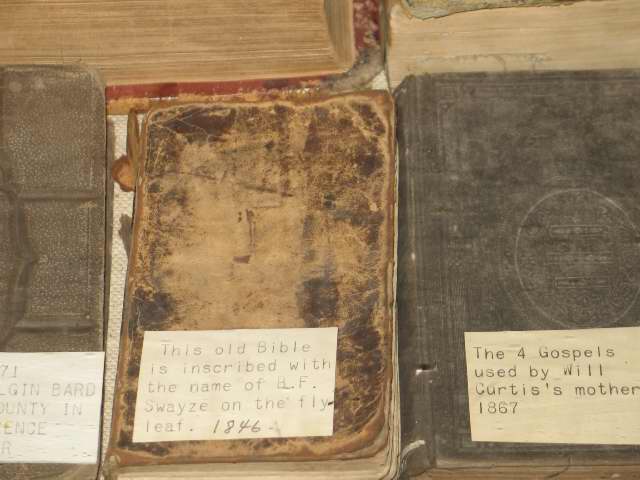 71
LGIN BARD
OUNTY IN
ENCE
R
This old Bible
is inscribed with
the name of B.F.
Swayze on the fly-
leaf. 1846.
The 4 Gospels
used by Will
Curtis's mother
1867